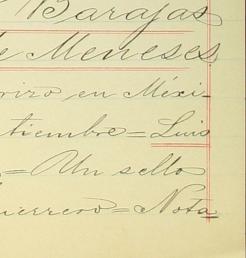 Barajas
de Meneses
rizo en Méxi-
tiembre=Luis
=Un sello
Guerrero=Nota